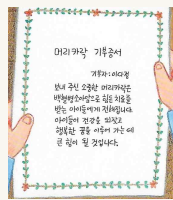 머리카락 기부증서
기부자 : 이다정
보내 주신 소중한 머리카락은
백혈병소아암으로 힘든 치료를
받는 아이들에게 전해집니다.
아이들이 건강을 되찾고
행복한 꿈을 이루어 가는 데
큰 힘이 될 것입니다.